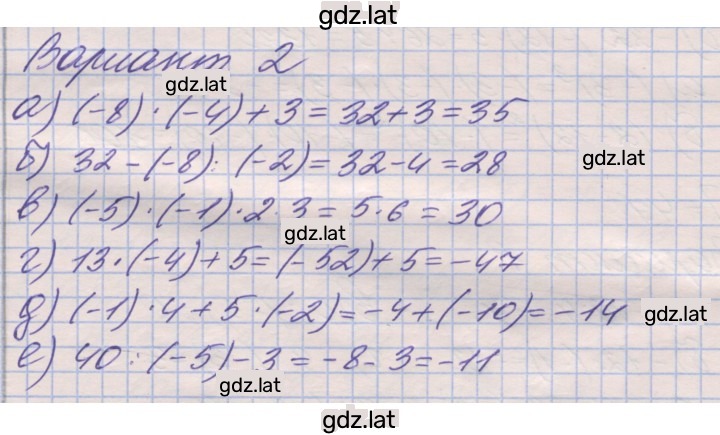 gdz.lat
Вариант 2
gdz.lat
а) (-8) · (-4) + 3 = 32 + 3 = 35
б) 32 - (-8) : (-2) = 32 - 4 = 28
gdz.lat
в) (-5) · (-1) · 2 · 3 = 5 · 6 = 30
gdz.lat
г) 13 · (-4) + 5 = (-52) + 5 = -47
д) (-1) · 4 + 5 · (-2) = -4 + (-10) = -14
gdz.lat
е) 40 : (-5) - 3 = -8 - 3 = -11
gdz.lat
gdz.lat